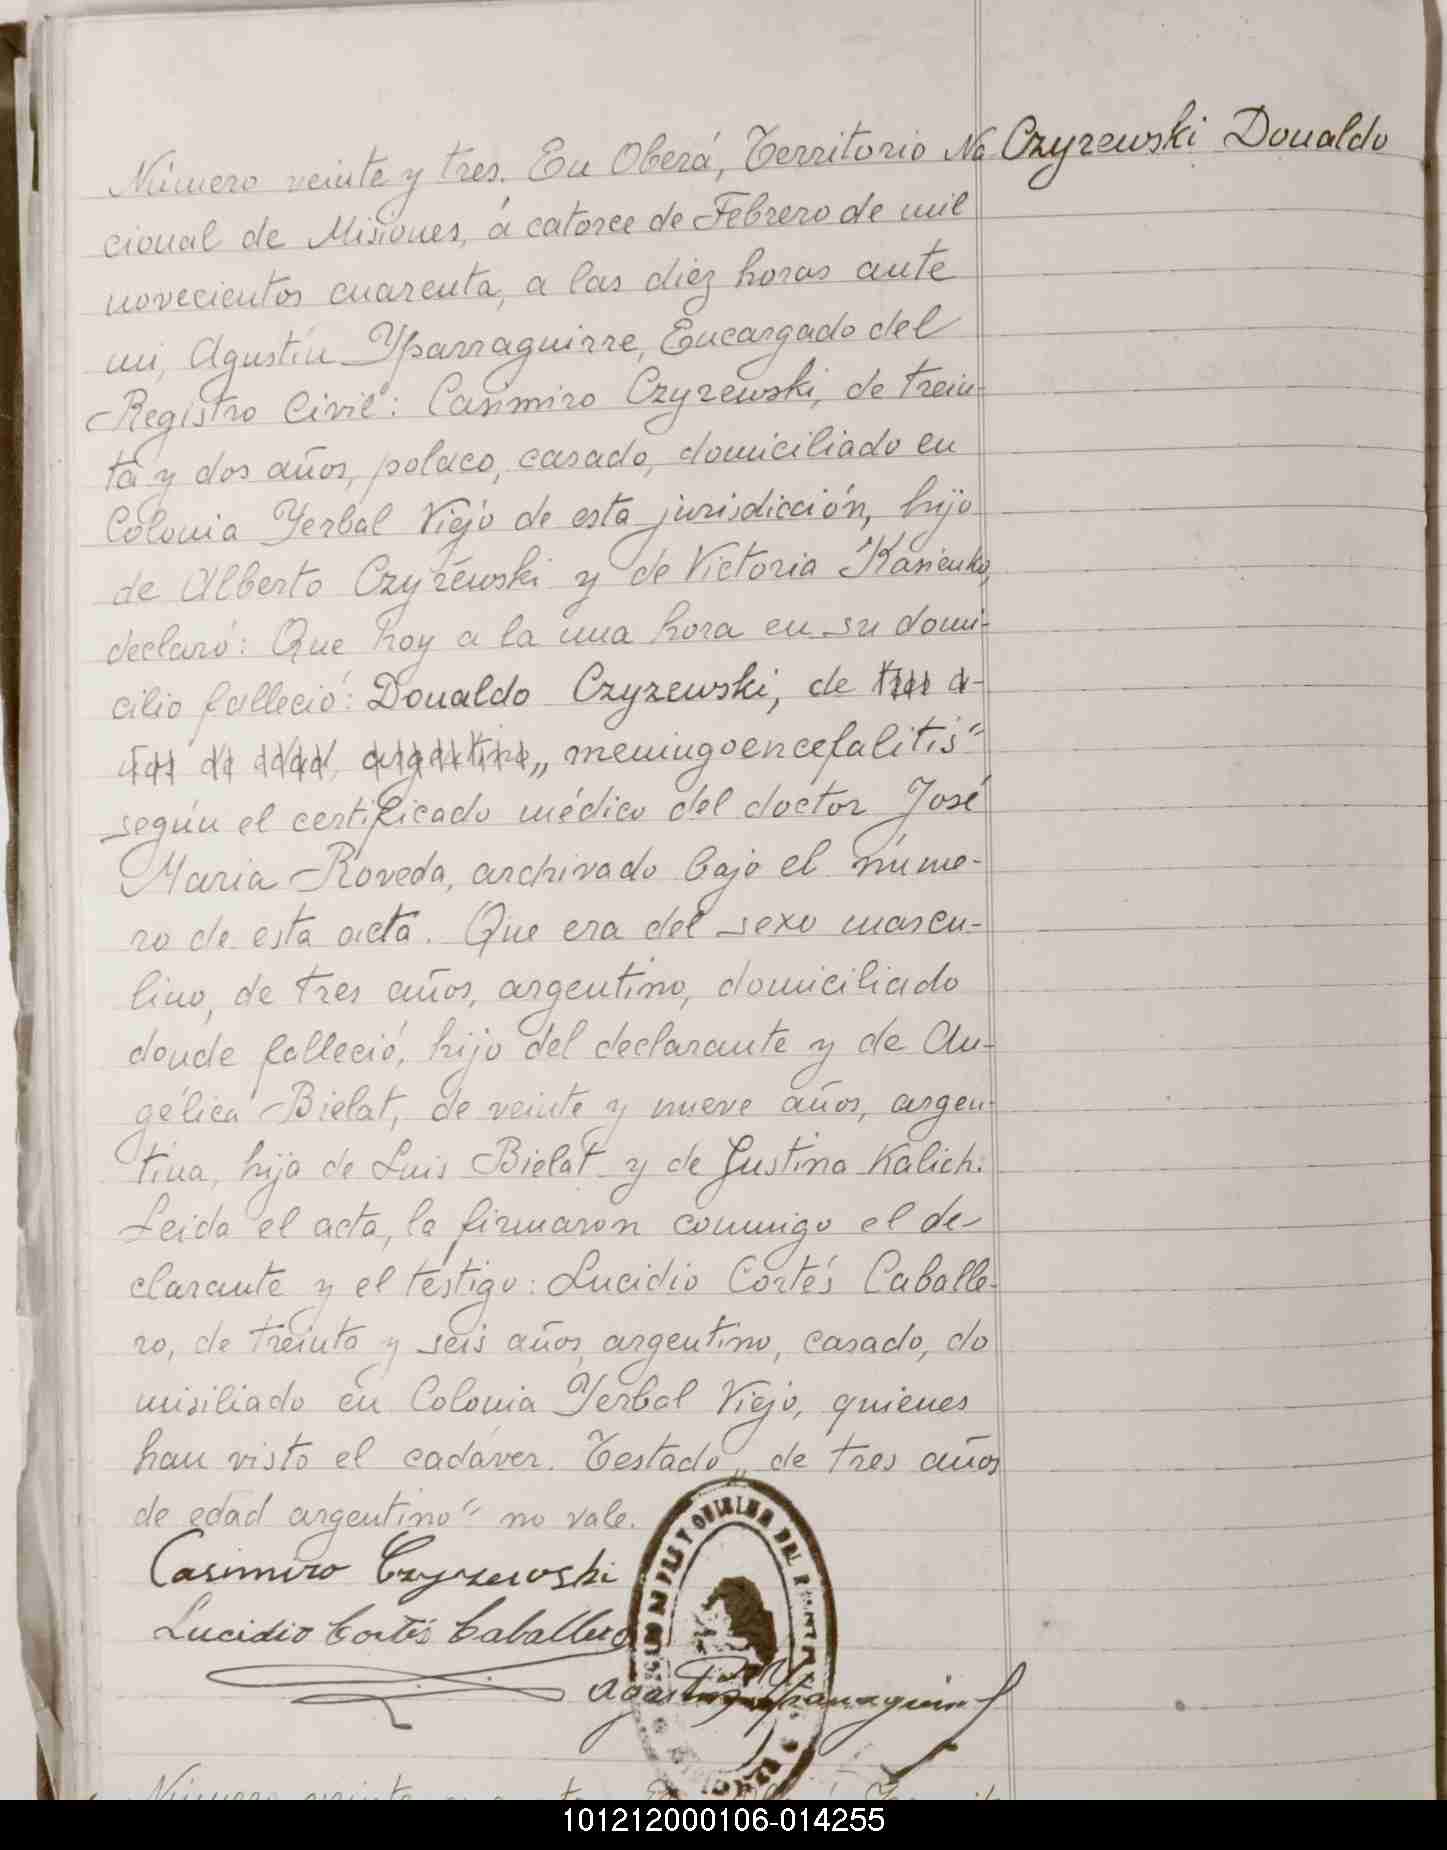 Número veinte y tres. En Oberá, Territorio Na
Czyzewski Donaldo
cional de Misiones, á catorce de Febrero de mil
novecientos cuarenta, a las diez horas ante
mi, Agustín Yparraguirre, Encargado del
Registro Civil: Casimiro Czyzewski, de trein-
ta y dos años, polaco, casado, domiciliado en
Colonia Yerbal Viejo de esta jurisdicción, hijo
de Alberto Czyzewski y de Victoria Kasienko,
declaró: Que hoy a la una hora en su domi-
cilio falleció: Donaldo Czyzewski, de tres a-
ños de edad, argentino, „meningoencefalitis"
según el certificado médico del doctor José
Maria Roveda, archivado bajo el núme-
ro de esta acta. Que era del sexo mascu-
lino, de tres años, argentino, domiciliado
donde falleció, hijo del declarante y de An-
gélica Bielat, de veinte y nueve años, argen-
tina, hija de Luis Bielat y de Justina Kalich.
Leida el acta, la firmaron conmigo el de-
clarante y el testigo: Lucidio Cortés Caballe-
ro, de treinta y seis años, argentino, casado, do
misiliado en Colonia Yerbal Viejo, quienes
han visto el cadáver. Testado „de tres años
de edad argentino" no vale.
Casimiro Czyzewski
Lucidio Cortés Caballero
Agustín Yparraguirre
101212000106-014255